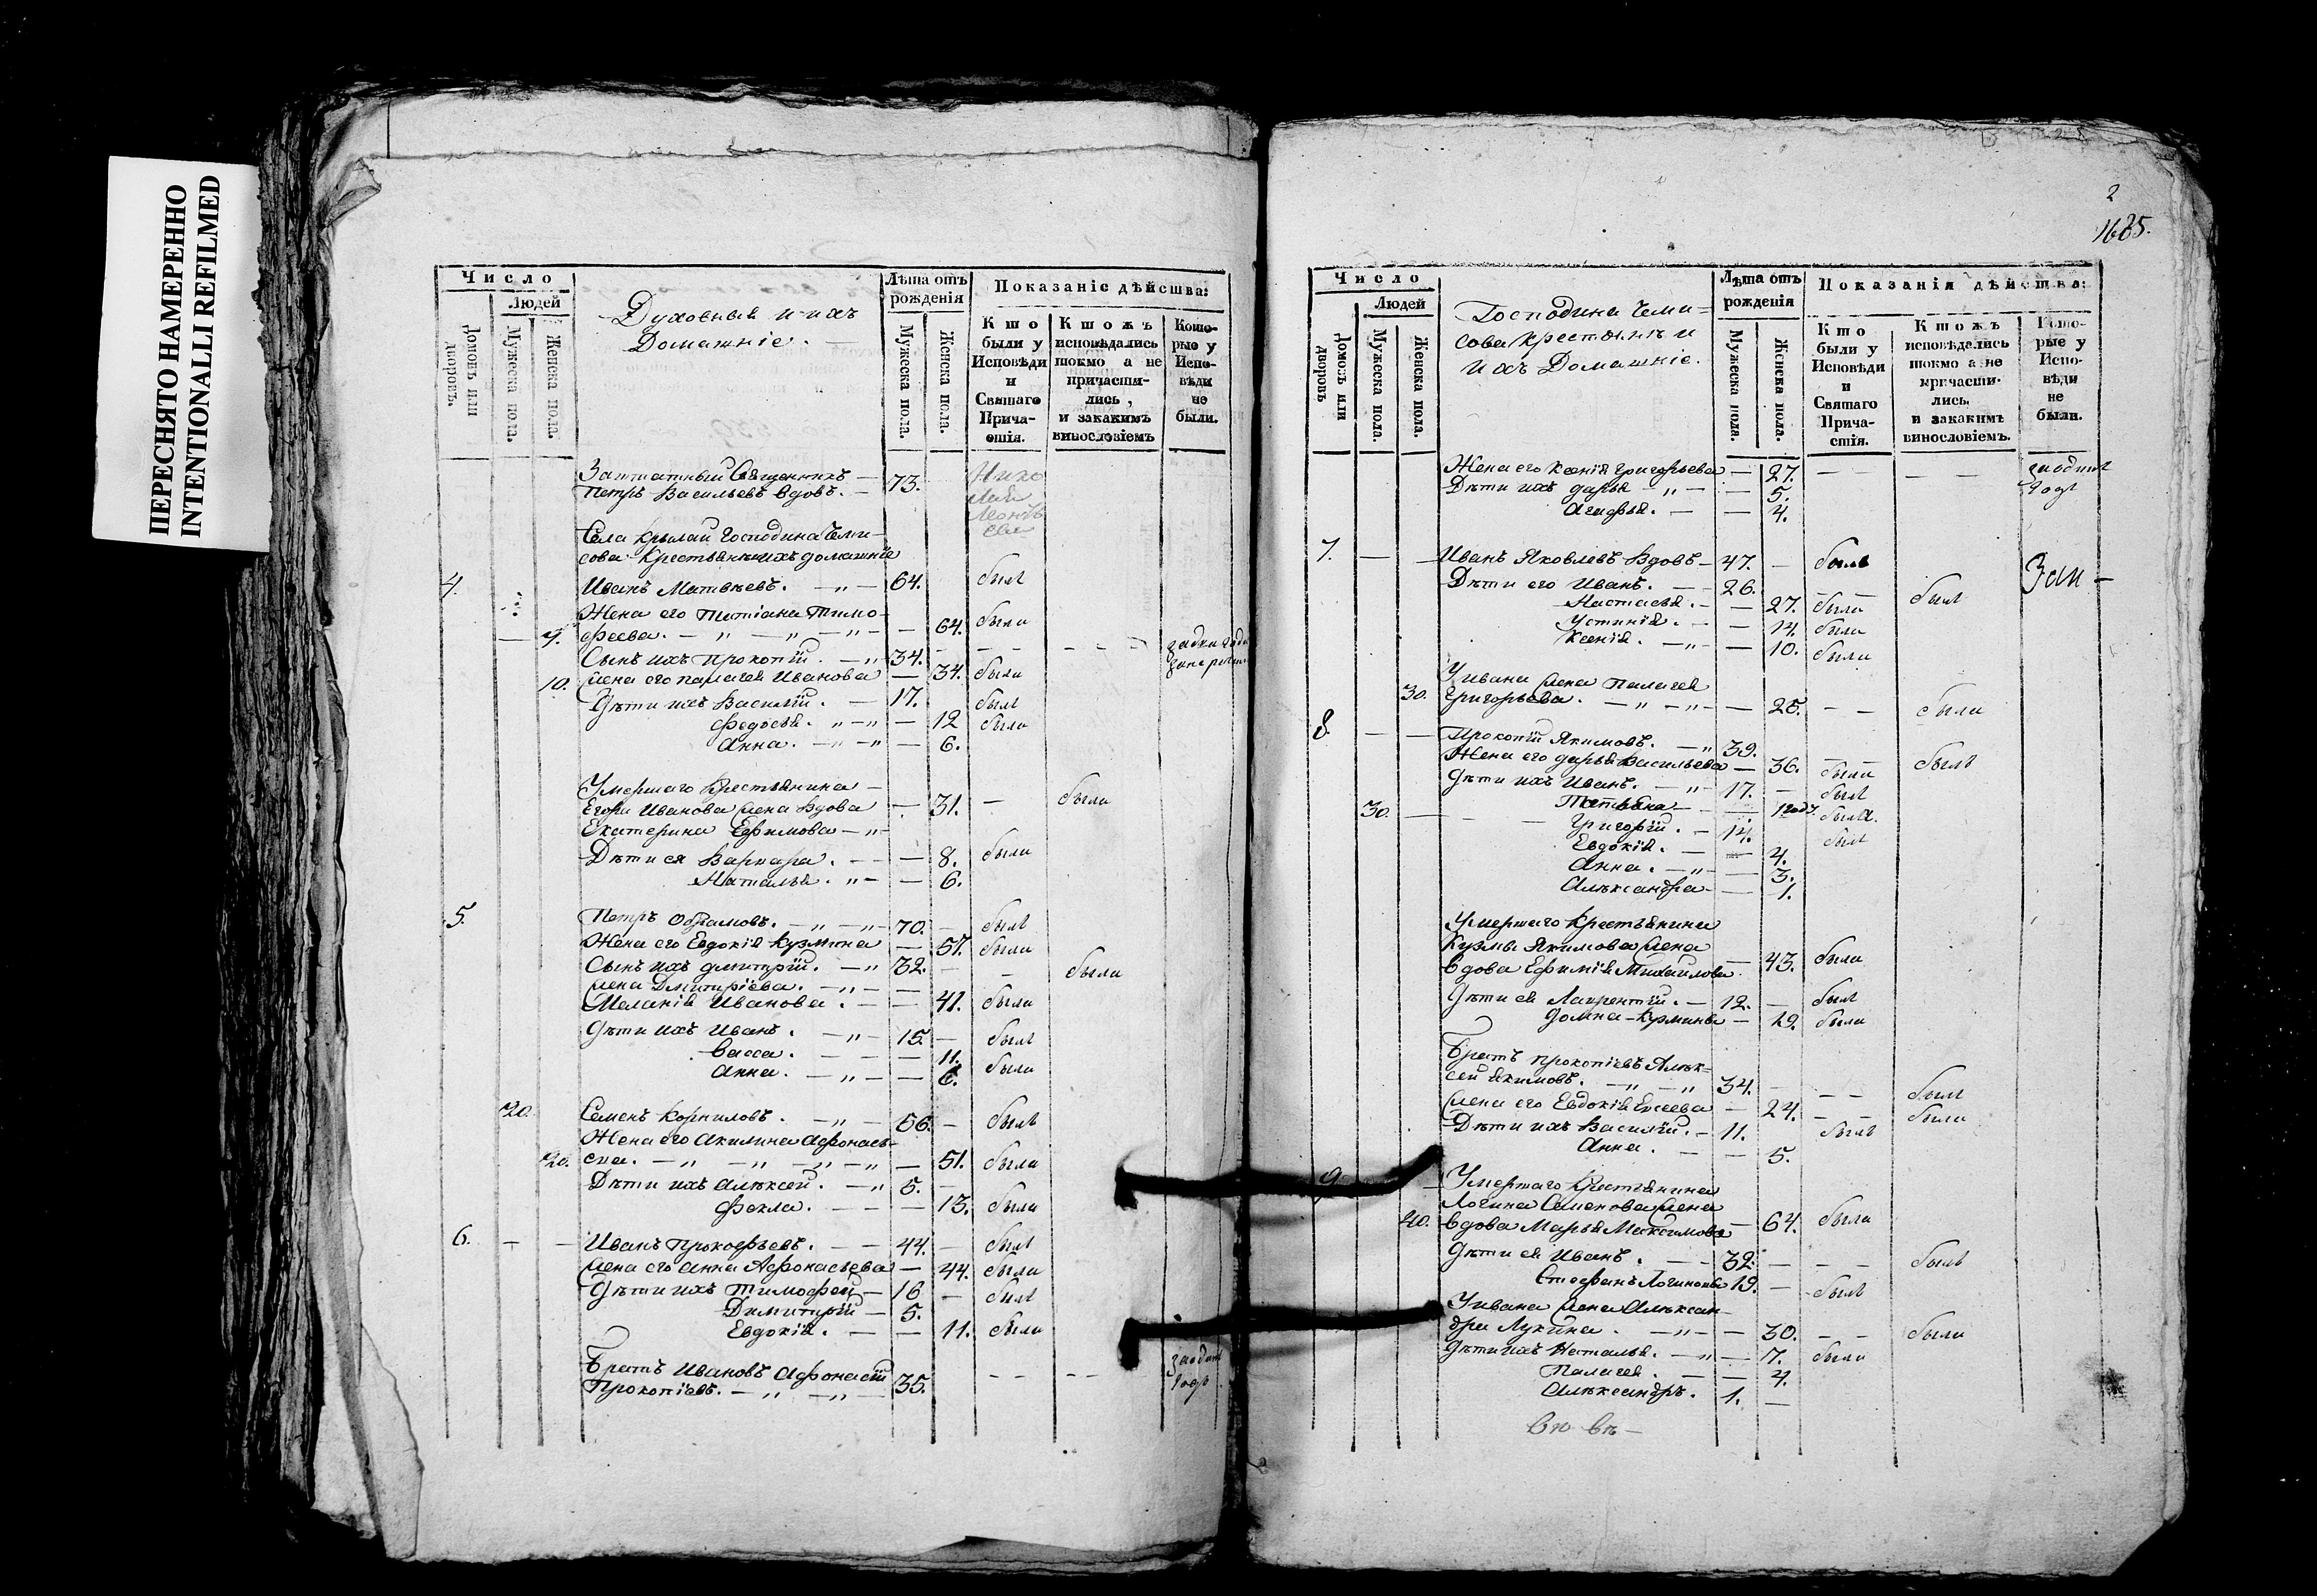 ПЕРЕСНЯТО НАМЕРЕННО
INTENTIONALLI REFILMED
Число
Людей
Домовъ или дворовъ.
Мужеска пола.
Женска пола.
Духовныя и ихъ
Домашніе.
Лѣта отъ рожденія
Мужеска пола.
Женска пола.
Показаніе дѣйства:
Кто были у Исповѣди и Святаго Причастія.
Ктожъ исповѣдались токмо а не причастились, и закакимъ винословіемъ
Которые у Исповѣди не были.
Заштатный Священникъ —
Петръ Васильевъ вдовъ. — 73.
Села Крылай Господина Чеми-
сова Крестьяне и ихъ домашніе
4. Иванъ Матвѣевъ. — „ — 64. былъ
Жена его Татіана Тимо-
9. феева. — „ — „ — „ — — 64. была
Сынъ ихъ Прокопій. — „ 34. — — —
10. Жена его Палагея Иванова — 34. была
Дѣти ихъ Василій. — 17. былъ
Федосья. „ — „ — 12 была
Анна. — „ — „ — 6.
Умершаго Крестьянина —
Егора Иванова жена вдова — 31. — была
Екатерина Ефимова — „ —
Дѣти ея Варвара. — — 8. была
Наталья. „ — — 6.
5. Петръ Обрамовъ. — „ — „ — 70. — былъ
Жена его Евдокія Кузмина — 57. была
Сынъ ихъ Дмитрій. — „ 32. — — была
Жена Дмитріева. — „ — —
Меланія Иванова. — — 41. была
Дѣти ихъ Иванъ. — „ — 15. — былъ
Васса. — — — 11.
Анна. — „ — — 6. была
20. Семенъ Корниловъ. — „ — 56. — былъ
Жена его Акилина Афонась-
20. ева. — „ — „ — „ — „ — 51. была
Дѣти ихъ Алѣксей. — „ 5. —
Фекла. — — — 13. была
6. — — Иванъ Прокофьевъ. — — 44. — былъ
Жена его Анна Афонасьева — 44. была
Дѣти ихъ Тимофей — 16 — былъ
Димитрій — 5.
Евдокія. — — 11. была
Братъ Ивановъ Афонасій
Прокопіевъ. — „ — „ — 35. — — — — заодинъ годъ
2
1685.
Число
Людей
Домовъ или дворовъ
Мужеска пола.
Женска пола.
Господина Чеми-
сова Крестьянъ и
ихъ Домашніе.
Лѣта отъ рожденія
Мужеска пола.
Женска пола.
Показанія дѣйства:
Кто были у Исповѣди и Святаго Причастія.
Ктожъ исповѣдались токмо а не причастились. и закакимъ винословіемъ.
Которые у Исповѣди не были.
Жена его Ксенія Григорьева — 27. — — — — заодинъ годъ
Дѣти ихъ Дарья — „ — — 5.
Агафья. — — 4.
7. — — Иванъ Яковлевъ вдовъ — 47. — былъ
Дѣти его Иванъ. — — 26. — — былъ
Настасья. — — 27. была
Устинія. — — 14. была
Ксенія. — „ — — 10. была
У Ивана жена Палагея
30. Григорьева. — „ — „ — — 25. — — была
8. — — Прокопій Якимовъ. — „ 39. — — былъ
Жена его Дарья Васильева — 36. была
Дѣти ихъ Иванъ. — „ — 17. — былъ
Татьяна — — была.
30. — Григорій. — 14. былъ
Евдокія. — — 4.
Анна. — „ — — 3.
Алѣксандра — — 1.
Умершаго Крестьянина
Кузмы Якимова жена
вдова Ефимія Михаилова — 43. была
Дѣти ея Лаврентій. — 12. — былъ
Домна — Кузмина — 19. была
Братъ Прокопіевъ Алѣк-
сей Якимовъ. — „ — „ 34. — — — былъ
Жена его Евдокія Евсеева — 24. — — была
Дѣти ихъ Василій. — 11. былъ
Анна. — — 5.
9. Умершаго Крестьянина
Логина Семенова жена
40. вдова Марья Максимова — 64. была
Дѣти ея Иванъ. — — 32. — — — былъ
Стефанъ Логиновъ 19. — былъ
У Ивана жена Алѣксан-
дра Лукина. — „ — — 30. — — была
Дѣти ихъ Наталья. — „ — 7. была
Палагея. — — 4.
Алѣксандръ. 1. —